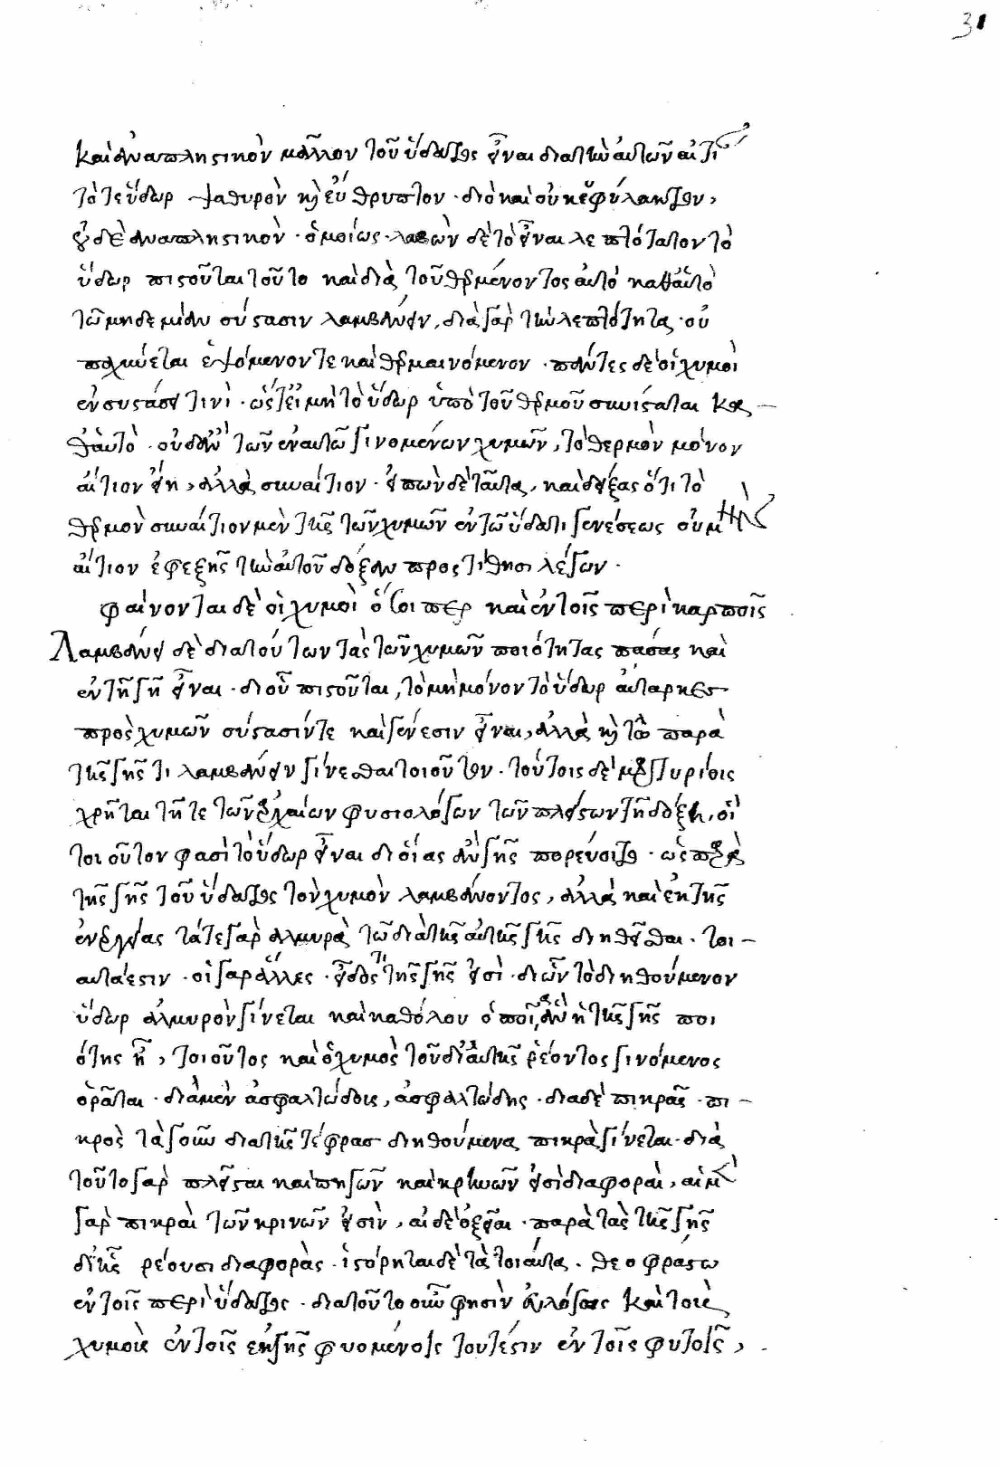 31
καὶ ἀναπληστικὸν μᾶλλον τοῦ ὕδατος εἶναι διὰ τὴν αὐτῶν αἰτίαν
τό τε ὕδωρ ψαθυρὸν καὶ εὔθρυπτον· διὸ καὶ οὐκ εὐφύλακτον,
οὐδὲ ἀναπληστικὸν· ὁμοίως· λαβὼν δὲ τὸ εἶναι λεπτότατον τὸ
ὕδωρ πιστοῦται τοῦτο καὶ διὰ τοῦ θερμαίνοντος αὐτὸ καθ' αὑτὸ
τῶ μηδεμίαν σύστασιν λαμβάνειν, διὰ γὰρ τὴν λεπτότητα· οὐ
παχύνεται ἑψόμενόν τε καὶ θερμαινόμενον· πάντες δὲ οἱ χυμοὶ
ἐν συστάσει τινὶ· ὥστε εἰ μὴ τὸ ὕδωρ ὑπὸ τοῦ θερμοῦ συνίσταται κα-
θ' αὑτὸ· οὐδ' ἂν τῶν ἐν αὐτῶ γινομένων χυμῶν, τὸ θερμὸν μόνον
αἴτιον εἴη, ἀλλὰ συναίτιον· εἰπὼν δὲ ταῦτα, καὶ δείξας ὅτι τὸ
θερμὸν συναίτιον μὲν τῆς τῶν χυμῶν ἐν τῶ ὕδατι γενέσεως οὐ μὴν
αἴτιον ἐφεξῆς τὴν αὐτοῦ δόξαν προστίθησι λέγων·
φαίνονται δὲ οἱ χυμοὶ ὅσοι περ καὶ ἐν τοῖς περικαρποῖς
Λαμβάνει δὲ διὰ τούτων τὰς τῶν χυμῶν ποιότητας πάσας καὶ
ἐν τῆ γῆ εἶναι· δι' οὗ πιστοῦται, τὸ μὴ μόνον τὸ ὕδωρ αὔταρκες
πρὸς χυμῶν σύστασίν τε καὶ γένεσιν εἶναι, ἀλλὰ καὶ τῶ παρὰ
τῆς γῆς τι λαμβάνειν γίνεσθαι τοιοῦτον· τούτοις δὲ μαρτυρίοις
χρῆται τῆ τε τῶν ἀρχαίων φυσιολόγων τῶν πλείστων τῆ δόξη, οἵ
τοιοῦτόν φασι τὸ ὕδωρ εἶναι δι' οἵας ἂν γῆς πορεύοιτο· ὡς παρὰ
τῆς γῆς τοῦ ὕδατος τὸν χυμὸν λαμβάνοντος, ἀλλὰ καὶ ἐκ τῆς
ἐνεργείας τά τε γὰρ ἁλμυρὰ τῶ διὰ τῆς αὐτῆς γῆς διηθεῖσθαι· τοι-
αῦτά ἐστιν· οἱ γὰρ ἅλες· εἶδός τι τῆς γῆς εἰσὶ· δι' ὧν τὸ διηθούμενον
ὕδωρ ἁλμυρὸν γίνεται καὶ καθόλου ὁποία ἂν ἡ τῆς γῆς ποι
ότης ἦ, τοιοῦτος καὶ ὁ χυμὸς τοῦ δι' αὐτῆς ῥέοντος γινόμενος
ὁρᾶται· διὰ μὲν ἀσφαλτώδους, ἀσφαλτώδης· διὰ δὲ πικρᾶς· πι-
κρὸς τὰ γοῦν διὰ τῆς τέφρας διηθούμενα πικρὰ γίνεται· διὰ
τοῦτο γὰρ πλεῖσται καὶ πηγῶν καὶ κρηνῶν εἰσὶ διαφοραὶ, αἱ μὲν
γὰρ πικραὶ τῶν κρηνῶν εἰσὶν, αἱ δὲ ὀξεῖαι· παρὰ τὰς τῆς γῆς
δι' ἧς ῥέουσι διαφορὰς· ἱστόρηται δὲ τὰ τοιαῦτα· θεοφράστω
ἐν τοῖς περὶ ὕδατος· διὰ τοῦτο οὖν φησὶν εὐλόγως καὶ τοὺς
χυμοὺς ἐν τοῖς ἐκ γῆς φυομένοις τουτέστιν ἐν τοῖς φυτοῖς,